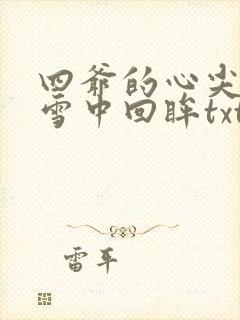 四爷的心尖
雪中回眸txt
雷平